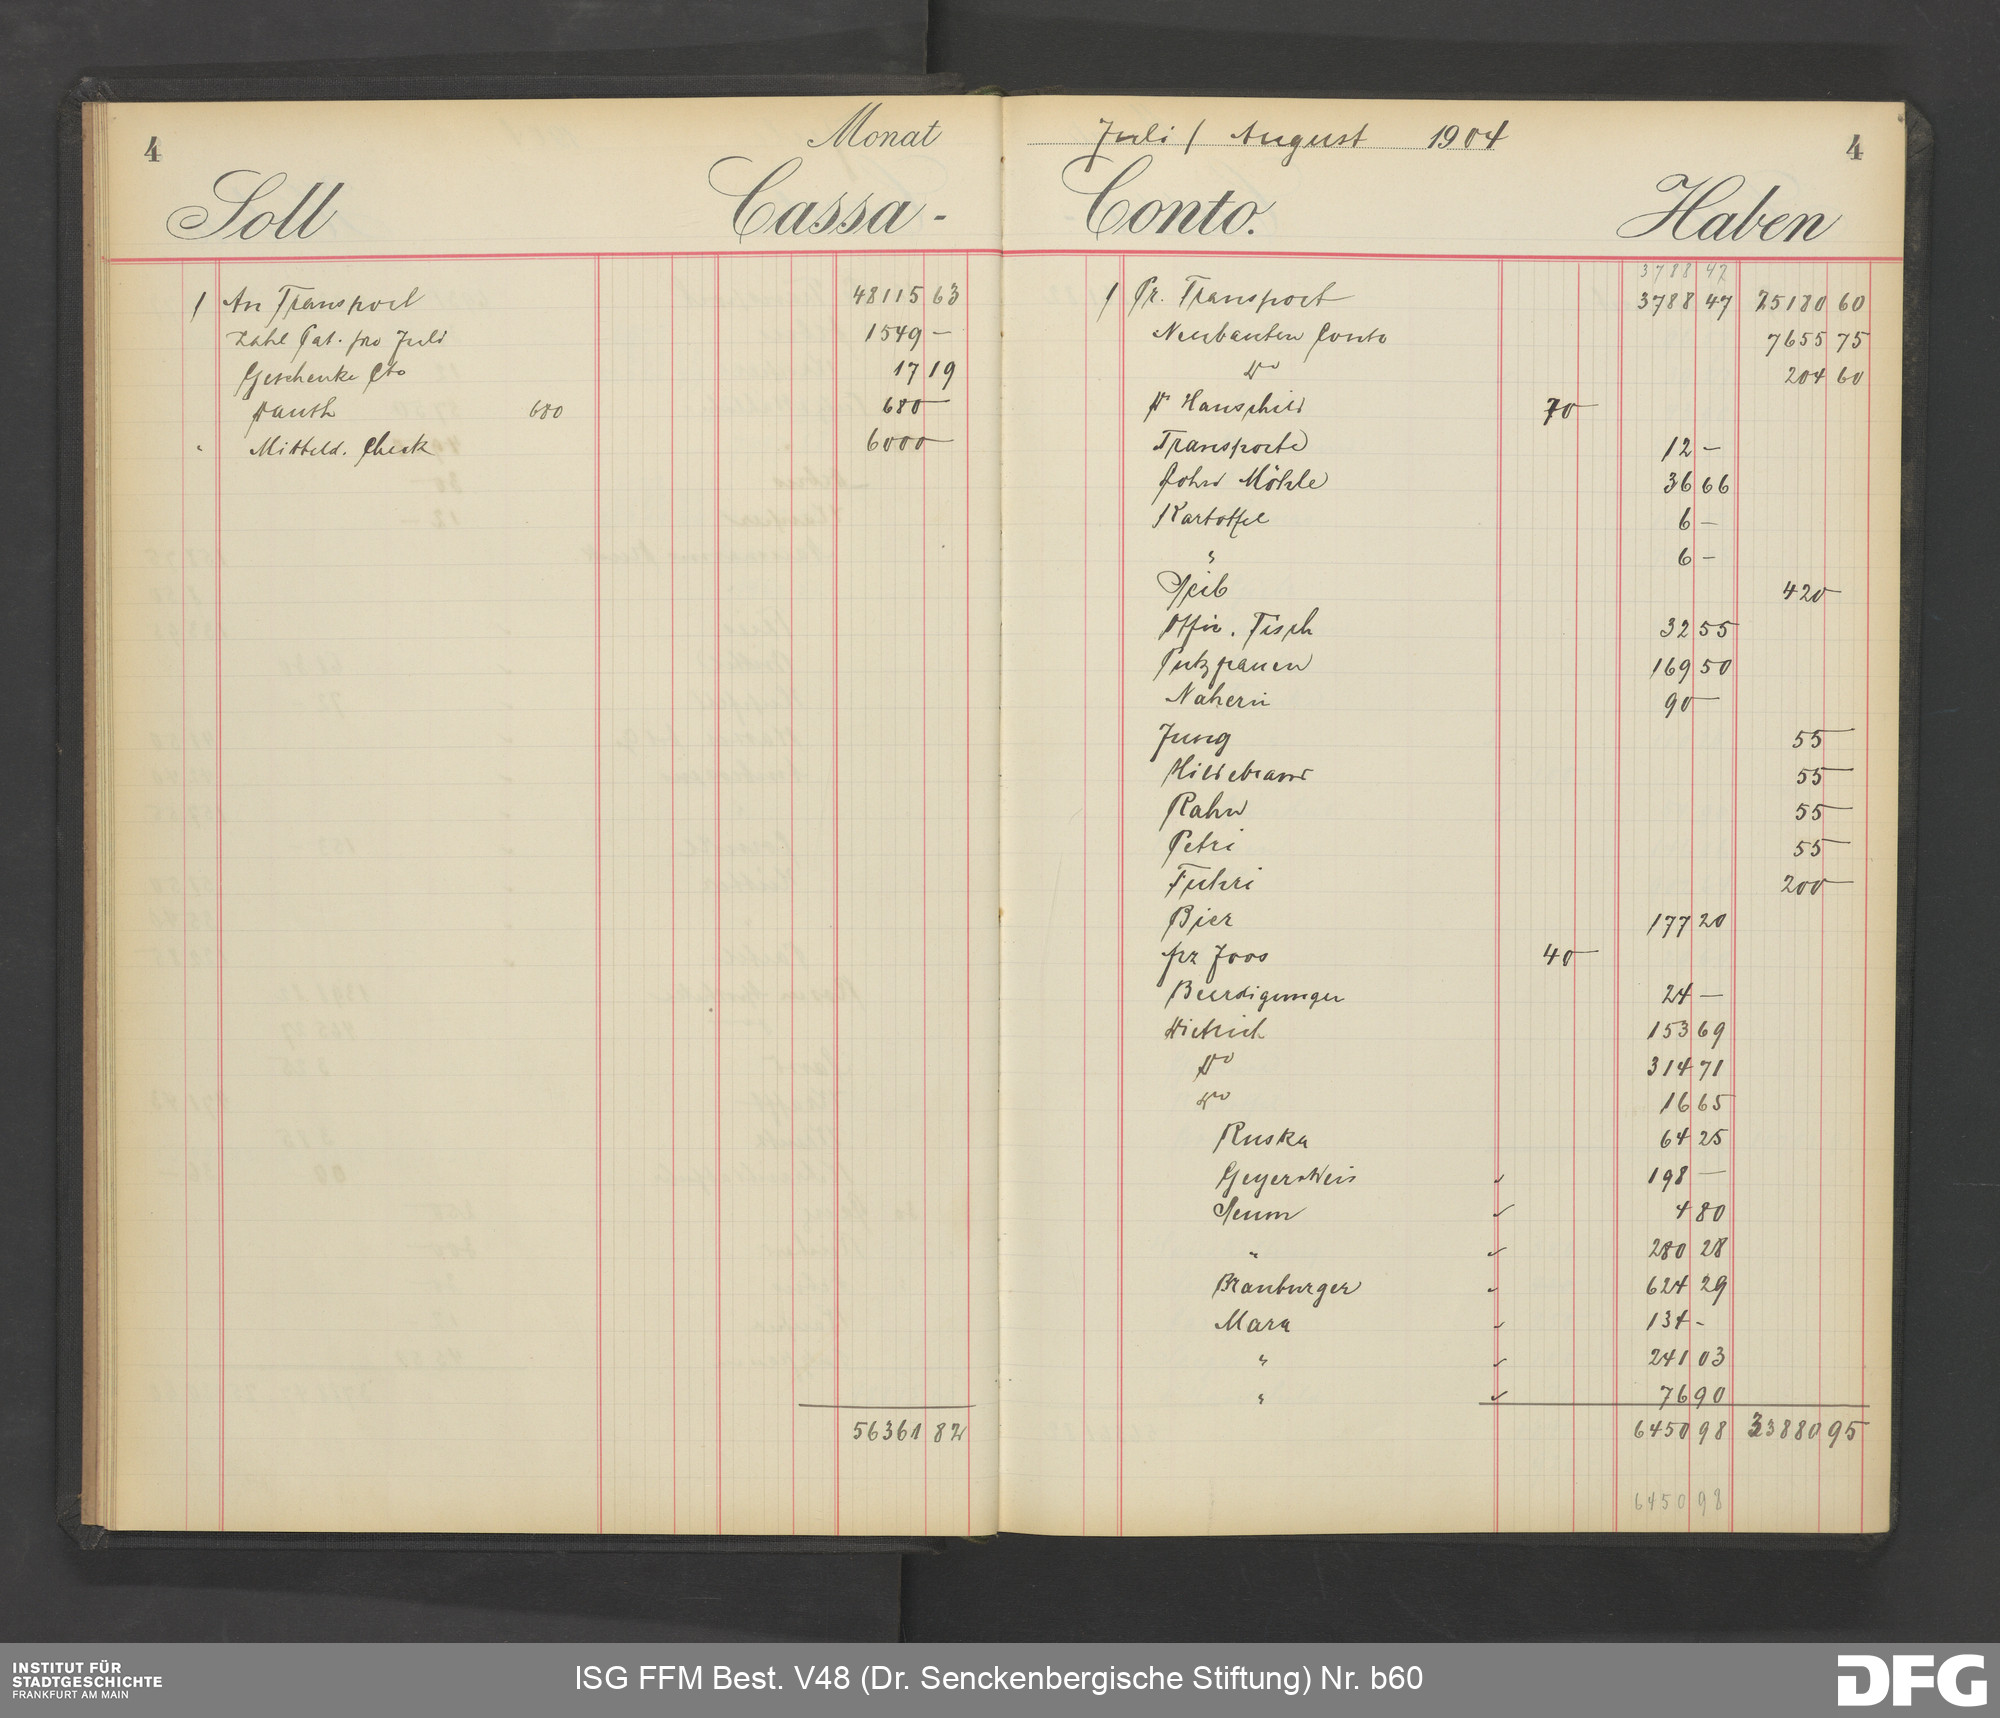 4
Monat
Soll
Cassa-
1 An Transport 48115 63
Zahl Pat. pro Juli 1549 —
Geschenke Cto 17 19
Dauth 680 680 —
" Mitteld. Check 6000 —
56361 82
Juli / August 1904
4
Conto.
Haben
3788 47
1 Pr. Transport 3788 47 25180 60
Neubauten Conto 7655 75
do 204 60
Dr Hauschild 70 —
Transporte 12 —
Möhle 36 66
Kartoffel 6 —
" 6 —
420 —
Tisch 32 55
Putzfrauen 169 50
Näherin 90 —
Jung 55 —
Hildebrand 55 —
Rahn 55 —
Petri 55 —
Fuhri 200 —
Bier 177 20
Joos 40 —
Beerdigungen 24 —
Dietrich 153 69
do 314 71
do 16 65
Ruska 64 25
198 —
4 80
" 280 28
Branburger 624 29
Mara 134 -
" 241 03
" 76 90
6450 98 33880 95
6450 98
INSTITUT FÜR
STADTGESCHICHTE
FRANKFURT AM MAIN
ISG FFM Best. V48 (Dr. Senckenbergische Stiftung) Nr. b60
DFG